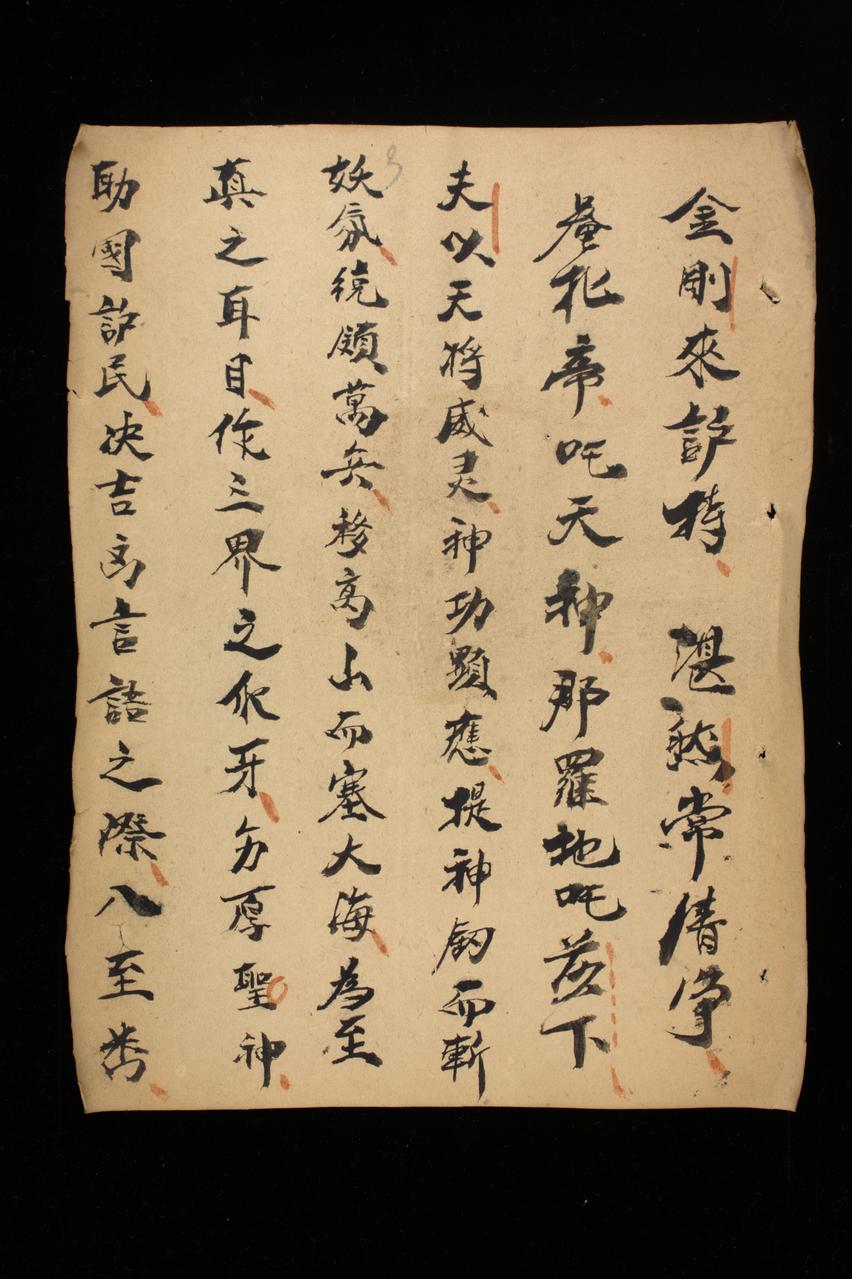 金剛來護持湛然常清净
唵扎帝吒天神那羅地吒下
夫以天将威灵神功顯應提神劔而斬
妖氛統領萬兵移高山而塞大海為至
真之耳目作三界之爪牙厚聖神
助國護民决吉凶言語之際八至